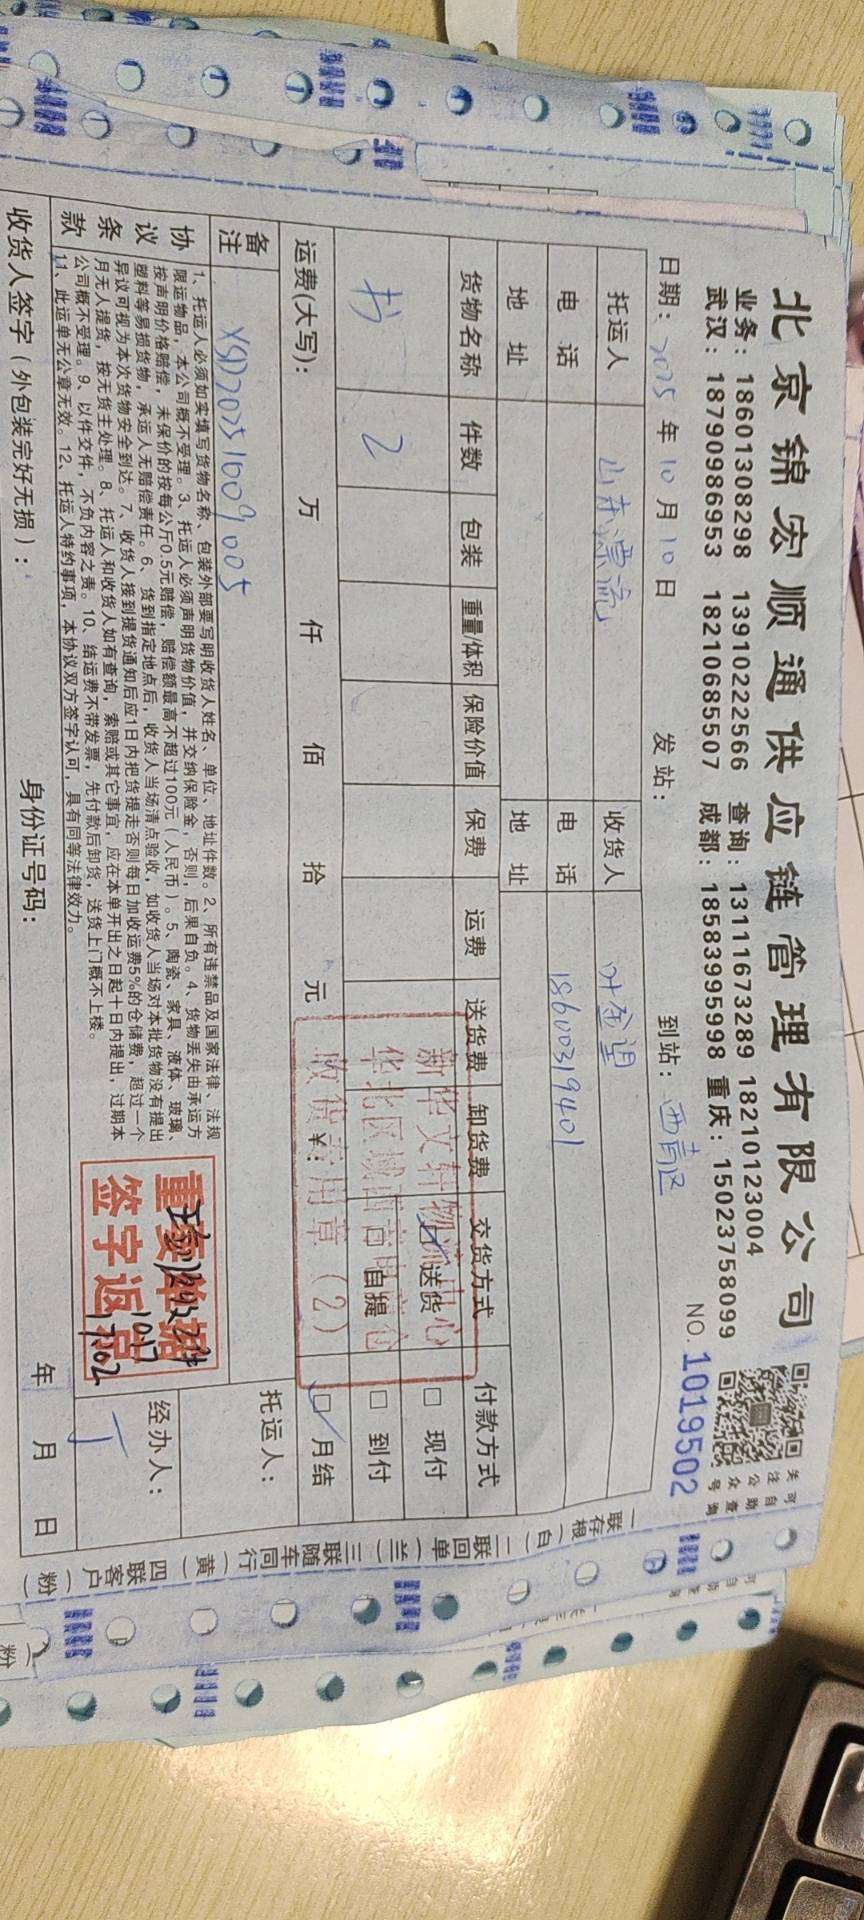 北京锦宏顺通供应链管理有限公司
业务：18601308298 13910222566 查询：13111673289 18210123004
武汉：18790986953 18210685507 成都：18583995998 重庆：15023758099
日期：2025年10月10日 发站： 到站：西青区 NO.1019502
托运人 山东漂流 收货人 叶金望
电话 电话 18600319401
地址 地址
货物名称 件数 包装 重量/体积 保险价值 保费 运费 送货费 卸货费 交货方式 付款方式
书 2 送货 □ 现付
自提 □ 到付
运费(大写)： 万 仟 佰 拾 元 ¥： □ 月结
新华文轩物流中心
华北区域西青中心仓
收货专用章（2）
备注 XSD20251009005
托运人：
协议条款
1、托运人必须如实填写货物名称、包装外部要写明收货人姓名、单位、地址件数。2、所有违禁品及国家法律、法规
限运物品，本公司概不受理。3、托运人必须声明货物价值，并交纳保险金，否则，后果自负。4、货物丢失由承运方
按声明价格赔偿，未保价的按每公斤0.5元赔偿，赔偿额最高不超过100元（人民币）。5、陶瓷、家具、液体、玻璃、
塑料等易损货物，承运人无赔偿责任。6、货到指定地点后，收货人当场清点验收，如收货人当场对本批货物没有提出
异议可视为本次货物安全到达。7、收货人接到提货通知后应1日内把货提走否则每日加收运费5%的仓储费，超过一个
月无人提货，按无货主处理。8、托运人和收货人如有查询，索赔或其它事宜，应在本单开出之日起十日内提出，过期本
公司概不受理。9、以件交件，不负内容之责。10、结运费不带发票，先付款后卸货，送货上门概不上楼。
11、此运单无公章无效。12、托运人特约事项，本协议双方签字认可，具有同等法律效力。
重要单据
签字返回
10.17
经办人：
收货人签字（外包装完好无损）： 身份证号码： 年 月 日
一联存根（白）二联回单（兰）三联随车同行（黄）四联客户（粉）